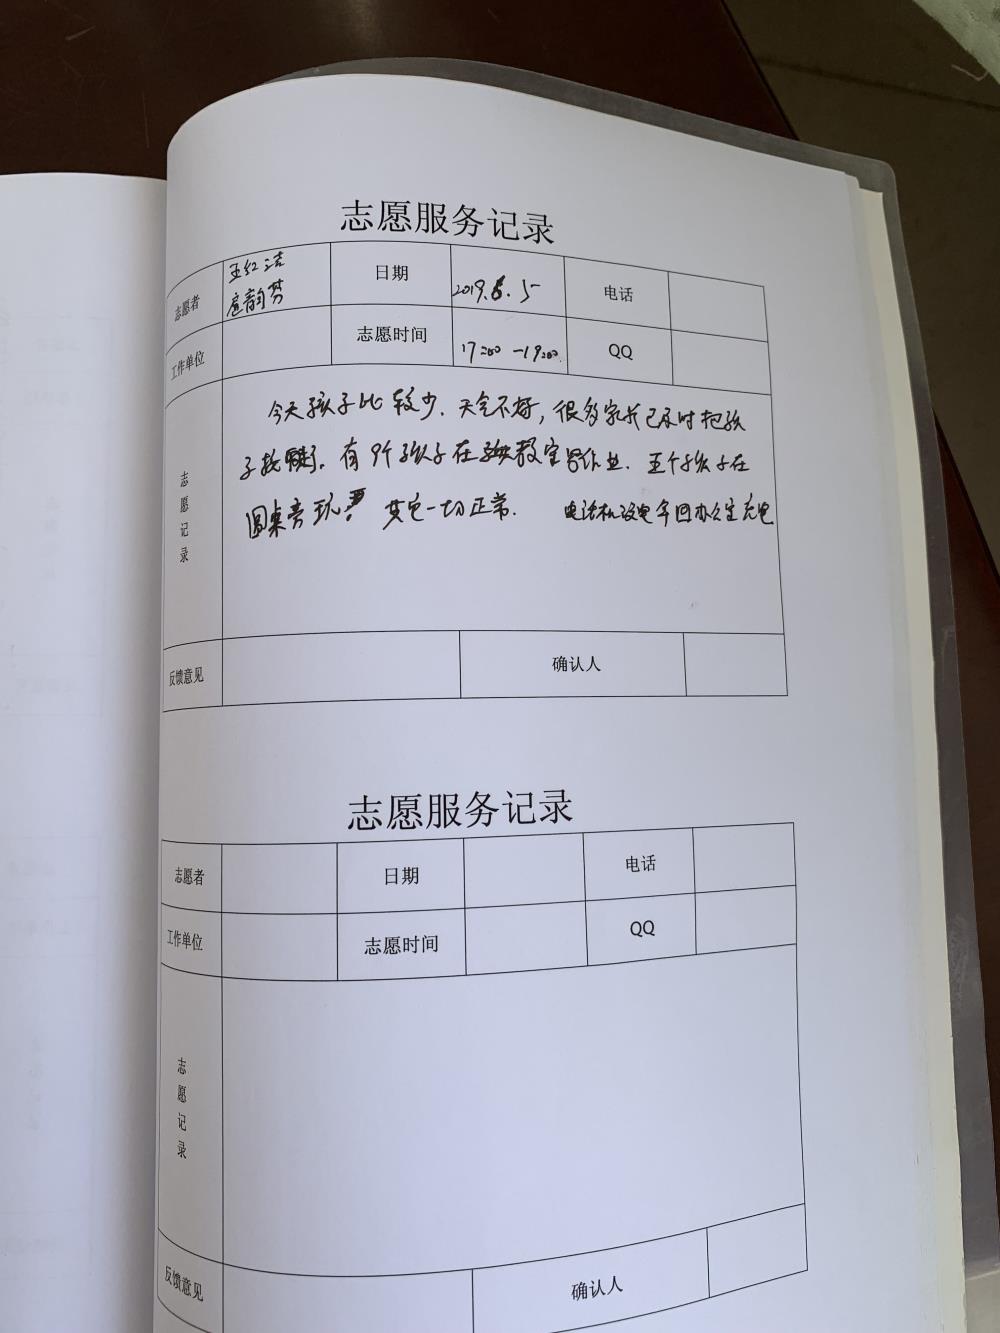 志愿服务记录
志愿者 王红洁 日期 2019.6.5 电话
韵芬
工作单位 志愿时间 17:00-19:00 QQ
志愿记录
今天孩子比较少.天气不好,很多家长已及时把孩
子接.有9个孩子在教室写作业.五个孩子在
圆桌旁玩 其它一切正常. 电话机没电 拿回办公室充电
反馈意见 确认人
志愿服务记录
志愿者 日期 电话
工作单位 志愿时间 QQ
志愿记录
反馈意见 确认人